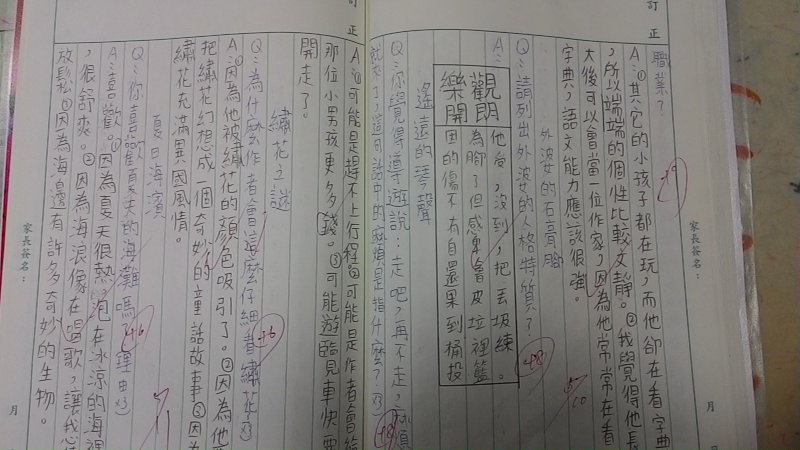 訂正
職業？
A：①其它的小孩子都在玩，而他卻在看字典
，所以端端的個性比較文靜。②我覺得他長
大後可以會當一位作家，因為他常常在看
字典，語文能力應該很強。
外波女的石膏腳
Q：請列出外波女的人格特質？
A：
觀朗
樂開
他後，沒到，把丟圾練。
為腳了但感果會皮垃裡籃
困的傷不有自還果到桶投
遙遠的琴聲
Q：你覺得導遊說：走吧，再不走，麻煩
就來了，這句話中的麻煩是指什麼？(3)
A：①可能是趕不上行程。②可能是作者會給
那位小男孩更多錢。③可能遊臨見車快要
開走了。
繡花之謎
Q：為什麼作者會這麼仔細看繡花？(3)
A：①因為他被繡花的顏色吸引了。②因為他
把繡花幻想成一個奇妙的童話故事③因為
繡花充滿異國風情。
夏日海濱
Q：你喜歡夏天的海灘嗎？理由(3)
A：喜歡。①因為夏天很熱，泡在冰涼的海裡
，很舒爽。②因為海浪像在唱歌，讓我
放鬆③因為海邊有許多奇妙的生物。
家長簽名：
月
訂正
家長簽名：
月